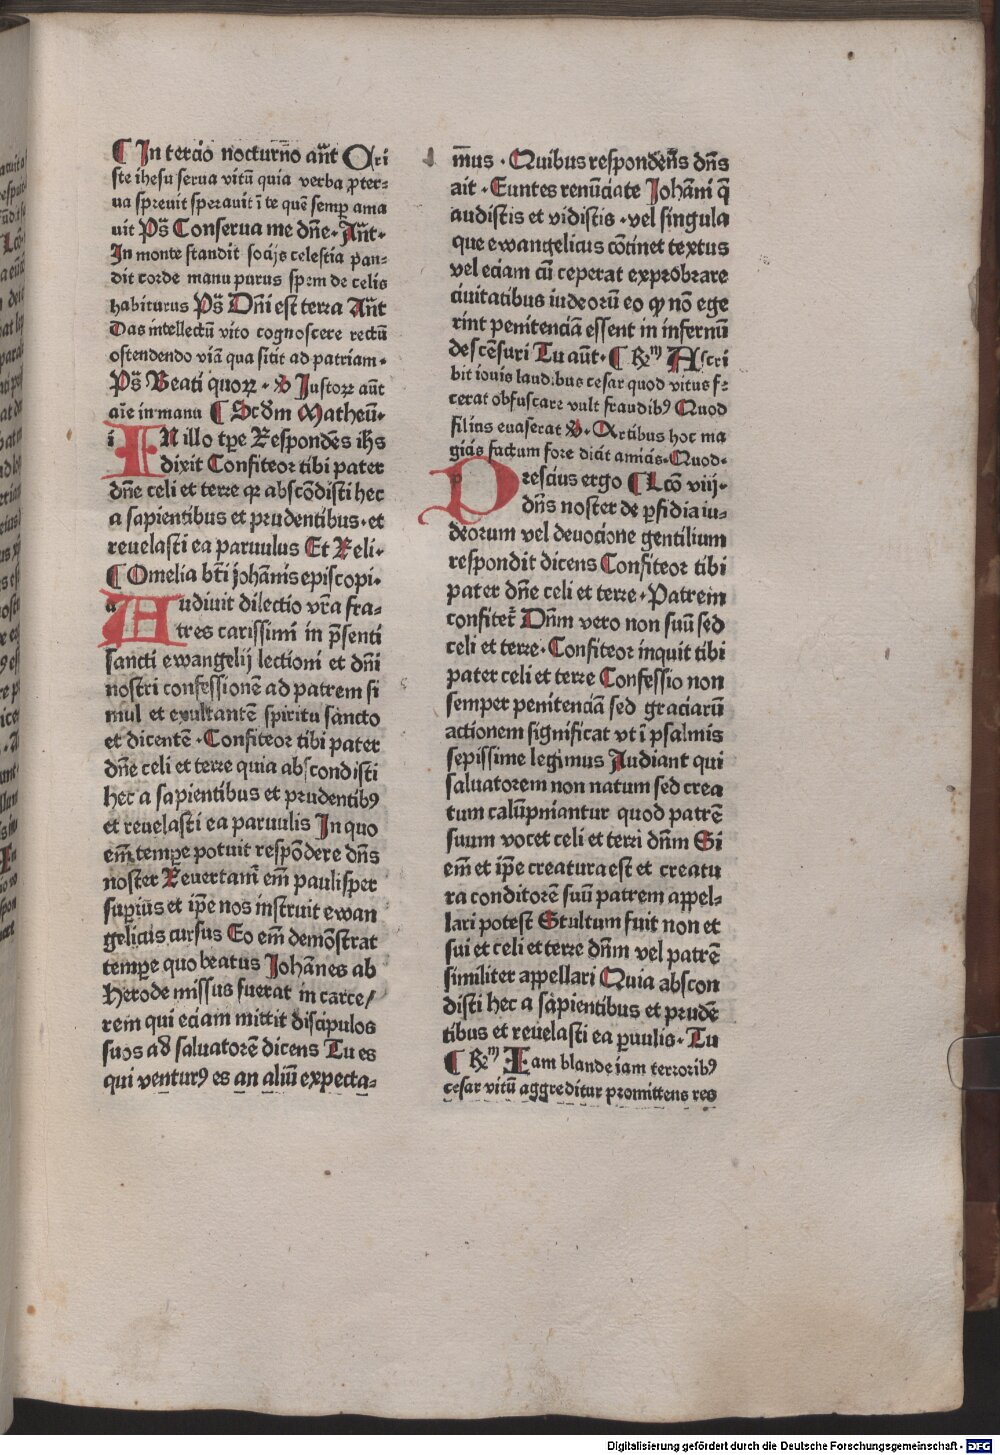 ¶ In tercio nocturño an̄t Cri
ste ihesu serua vitū quia verba ꝓter-
ua spreuit sperauit ī te quē semꝑ ama
uit Pš Conserua me dn̄e · An̄t ·
In monte standit socijs celestia pan-
dit corde manu purus spem de celis
habiturus Pš Dn̄i est terra An̄t
Das intellectū vito cognoscere rectū
ostendendo viā qua sitit ad patriam ·
Pš Beati quoꝝ · ℣ Iustoꝝ an̄t
aīe in manu ¶ Scd̄m Matheū ·
IN illo tꝑe Respondēs ih̄s
dixit Confiteor tibi pater
dn̄e celi et terre qꝛ abscōdisti hec
a sapientibus et prudentibus · et
reuelasti ea paruulus Et Reli ·
¶ Omelia bt̄i Johānis episcopi ·
Audiuit dilectio vr̄a fra-
tres carissimi in p̄senti
sancti ewangelij lectioni et dn̄i
nostri confessionē ad patrem si
mul et exultantē spiritu sancto
et dicentē · Confiteor tibi pater
dn̄e celi et terre quia abscondisti
hec a sapientibus et prudentibꝰ
et reuelasti ea paruulis In quo
em̄ tempe potuit respōdere dn̄s
noster Reuertamī em̄ paulisper
suꝑius et ip̄e nos instruit ewan
gelicus cursus Eo em̄ demōstrat
tempe quo beatus Johānes ab
Herode missus fuerat in carce/
rem qui eciam mittit discipulos
suos ad saluatorē dicens Tu es
qui venturꝰ es an aliū expecta-
mus · Quibus respondēns dn̄s
ait · Euntes renūciate Johāni q̄
audistis et vidistis · vel singula
que ewangelicus cōtinet textus
vel eciam cū ceperat exprobrare
ciuitatibus iudeorū eo ꝙ nō ege
rint penitenciā essent in infernū
descēsuri Tu aūt · ¶ ℞ Ascri
bit iouis laudibus cesar quod vitus fe
cerat obfuscare vult fraudibꝰ Quod
filius euaserat ℣ · Artibus hoc ma
gicis factum fore dicit amicis · Quod ·
Prescius ergo ¶ Lcō viij ·
dn̄s noster de ꝑfidia iu-
deorum vel deuocione gentilium
respondit dicens Confiteor tibi
pater dn̄e celi et terre · Patrem
confiter̄ Dn̄m vero non suū sed
celi et terre · Confiteor inquit tibi
pater celi et terre Confessio non
semper penitenciā sed graciarū
actionem significat vt ī psalmis
sepissime legimus Audiant qui
saluatorem non natum sed crea
tum calūpniantur quod patrē
suum vocet celi et terri dn̄m Si
em̄ et ip̄e creatura est et creatu
ra conditorē suū patrem appel-
lari potest Stultum fuit non et
sui et celi et terre dn̄m vel patrē
similiter appellari Quia abscon
disti hec a sapientibus et prudē
tibus et reuelasti ea ꝑuulis · Tu
¶ ℞ Iam blande iam terroribꝰ
cesar vitū aggreditur promittens res
Digitalisierung gefördert durch die Deutsche Forschungsgemeinschaft - DFG